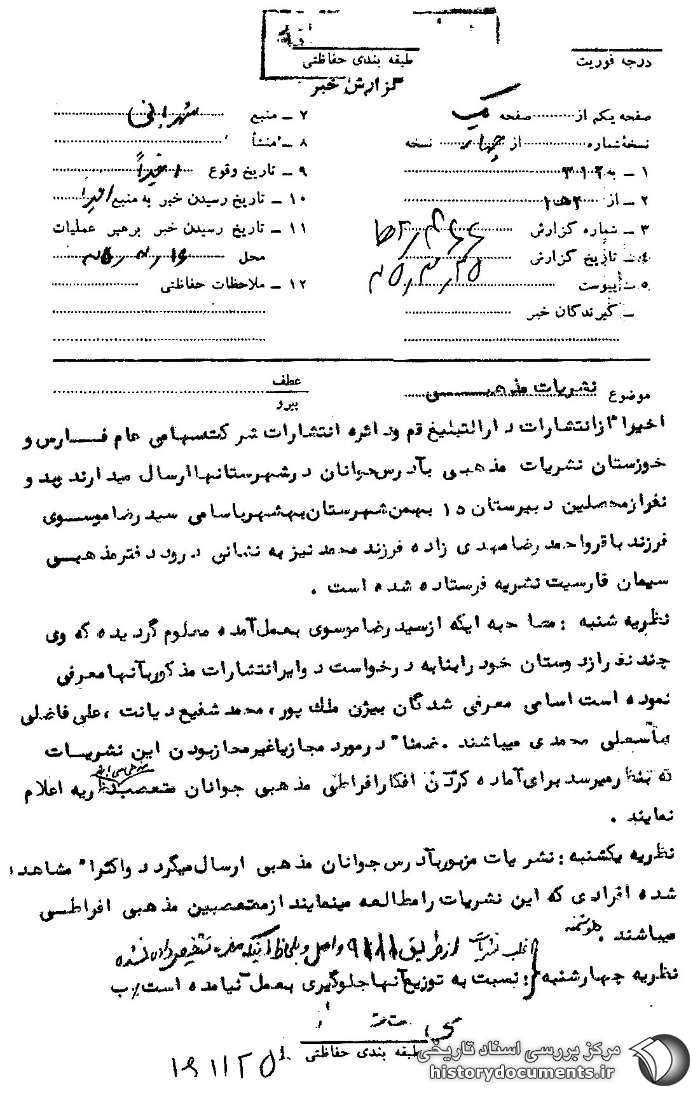 درجه فوریت
طبقه بندی حفاظتی
گزارش خبر
صفحه یکم از صفحه یک
نسخهٔ شماره از چهار نسخه
۱ - به ۳۱۲
۲ - از ۱ه۲
۳ - شماره گزارش
۴ - تاریخ گزارش ۲۵/۳/۲۵
۵ - پیوست
- گیرندگان خبر
۷ - منبع شهربانی
۸ - منشأ
۹ - تاریخ وقوع اخیراً
۱۰ - تاریخ رسیدن خبر به منبع اخیراً
۱۱ - تاریخ رسیدن خبر برهبر عملیات
محل
۱۲ - ملاحظات حفاظتی
موضوع نشریات مذهبی
عطف
پیرو
اخیرا" ازانتشارات دارالتبلیغ قم ودائره انتشارات شرکتسهامی عام فارس و
خوزستان نشریات مذهبی بآدرس جوانان درشهرستانهاارسال میدارند وبد و
نفرازمحصلین دبیرستان ۱۵ بهمن شهرستان بهشهرباسامی سید رضاموسوی
فرزند باقرواحمد رضامهدی زاده فرزند محمد نیز به نشانی درود دفترمذهبی
سیمان فارسیت نشریه فرستاده شده است .
نظریه شنبه : مصاحبه ایکه ازسید رضاموسوی بعمل آمده معلوم گردیده که وی
چند نفرازدوستان خود رابنابه درخواست دوایرانتشارات مذکوربآنهامعرفی
نموده است اسامی معرفی شدگان بیژن ملک پور، محمد شفیع دیانت ، علی فاضلی
عباسعلی محمدی میباشند . ضمنا" درمورد مجازیاغیرمجازبودن این نشریات
که بنظرمیرسد برای آماده کردن افکارافراطی مذهبی جوانان متعصب نظریه اعلام
نمایند .
نظریه یکشنبه : نشریات مزبوربآدرس جوانان مذهبی ارسال میگردد واکثرا" مشاهده
شده افرادی که این نشریات رامطالعه مینمایند ازمتعصبین مذهبی افراطی
میباشند .
اغلب نشریات ازطریق ۹۱۱۱ واصل و بلحاظ اینکه مضر تشخیص داده نشده
نظریه چهارشنبه : نسبت به توزیع آنهاجلوگیری بعمل نیامده است/ب
طبقه بندی حفاظتی
۱۹۱۱۲۵
مرکز بررسی اسناد تاریخی
historydocuments.ir